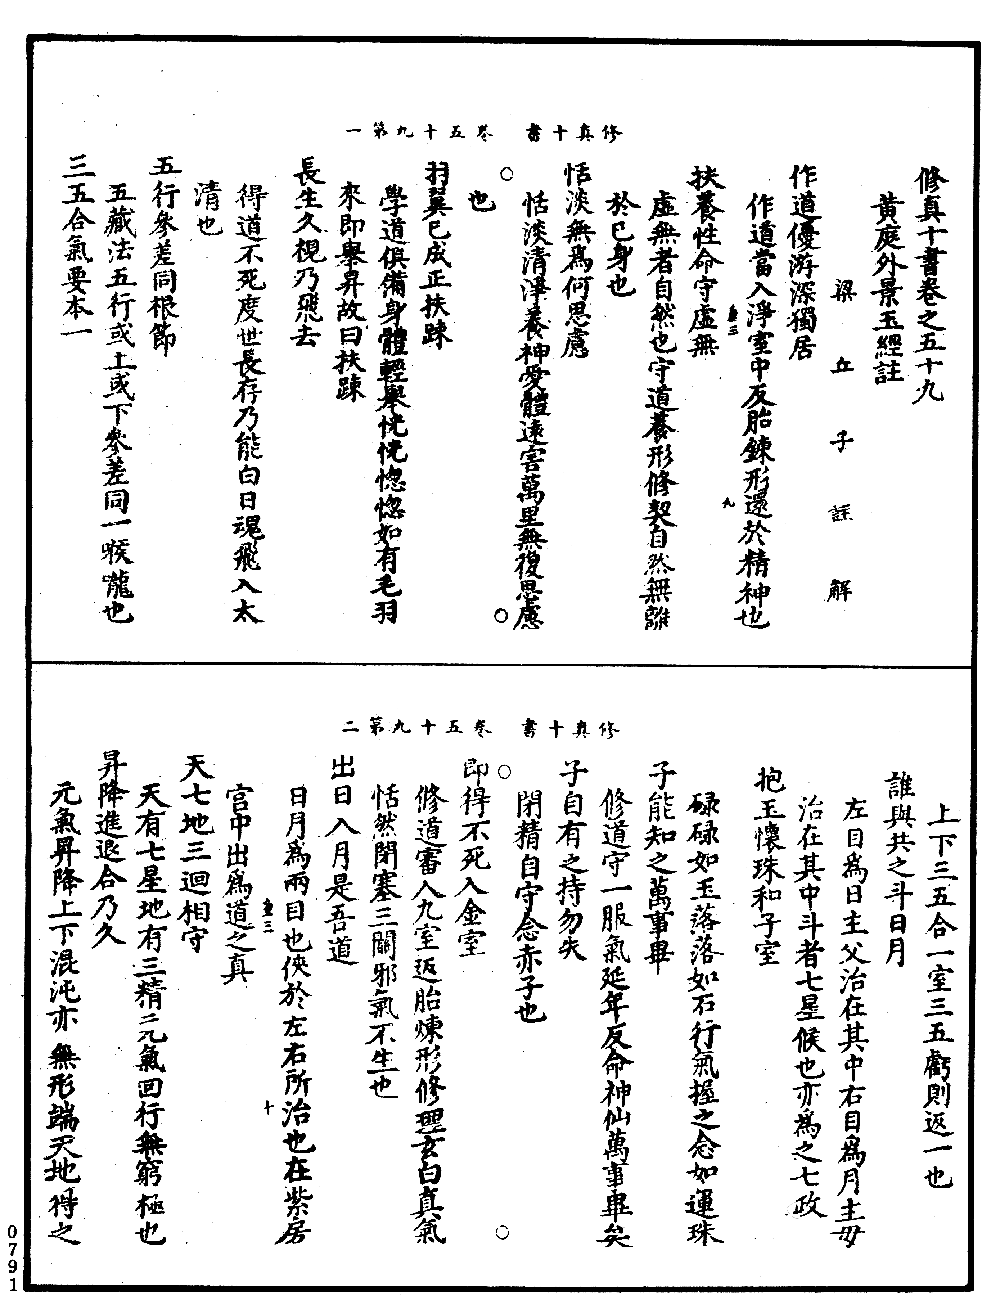 修真十書　卷五十九第一
修真十書卷之五十九
黃庭外景玉經註
梁丘子註解
作道優游深獨居
作道當入淨室中反胎鍊形還於精神也
扶養性命守虛無
虛無者自然也守道養形修契自然無離
於已身也
恬淡無為何思慮
恬淡清凈養神愛體遠害萬里無復思慮
也
羽翼已成正扶踈
學道俱備身體輕舉恍恍惚惚如有毛羽
來即舉昇故曰扶踈
長生久視乃飛去
得道不死度世長存乃能白日魂飛入太
清也
五行參差同根節
五藏法五行或上或下參差同一喉嚨也
三五合氣要本一
修真十書　卷五十九第二
上下三五合一室三五虧則返一也
誰與共之斗日月
左目為日主父治在其中右目為月主母
治在其中斗者七星候也亦為之七政
抱玉懷珠和子室
碌碌如玉落落如石行氣握之念如運珠
子能知之萬事畢
修道守一服氣延年反命神仙萬事畢矣
子自有之持勿失
閉精自守念赤子也
即得不死入金室
修道審入九室返胎煉形修理玄白真氣
恬然閉塞三關邪氣不生也
出日入月是吾道
日月為兩目也俠於左右所治也在紫房
宮中出為道之真
天七地三迴相守
天有七星地有三精元氣回行無窮極也
昇降進退合乃久
元氣昇降上下混沌亦無形端天地得之
0791